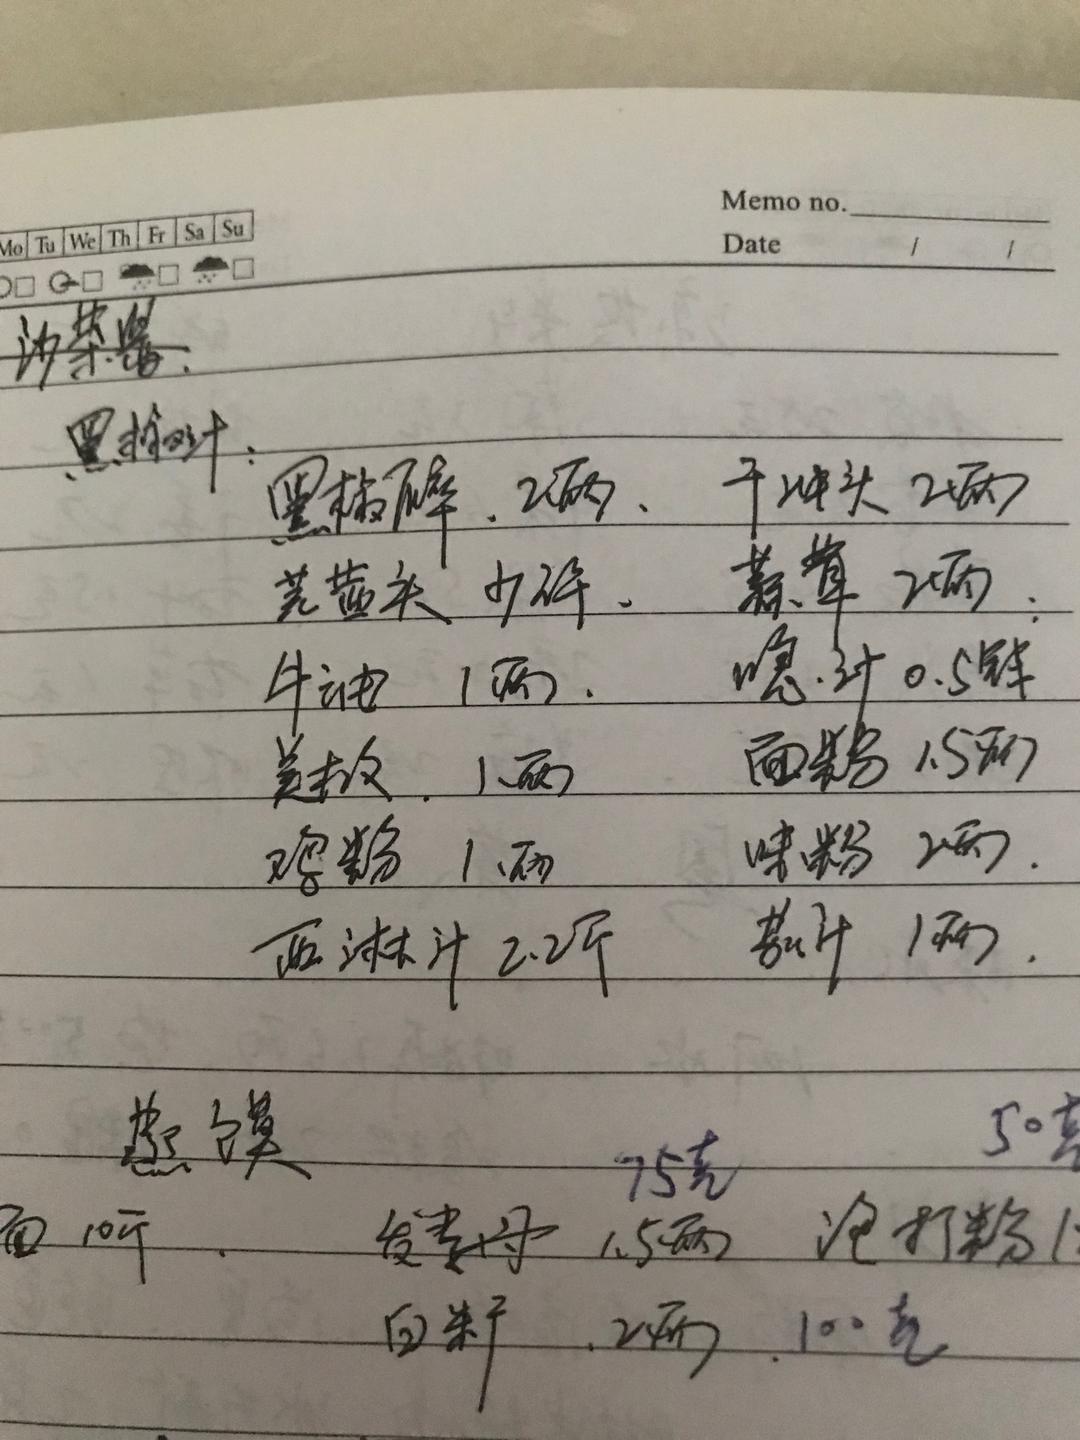 Memo no.
Mo Tu We Th Fr Sa Su
Date / /
沙茶酱.
黑椒汁:
黑椒碎. 2两、 干冲头 2两
芫茜头 少许. 蒜茸 2两:
牛油 1两. 喼汁 0.5
美极. 1两 面粉 1.5两
鸡粉 1两 味粉 2两.
西淋汁 2.2斤 1两.
蒸馍
75克 50克
面 10斤. 发孝母 1.5两 泡打粉 1
白 .2两. 100克